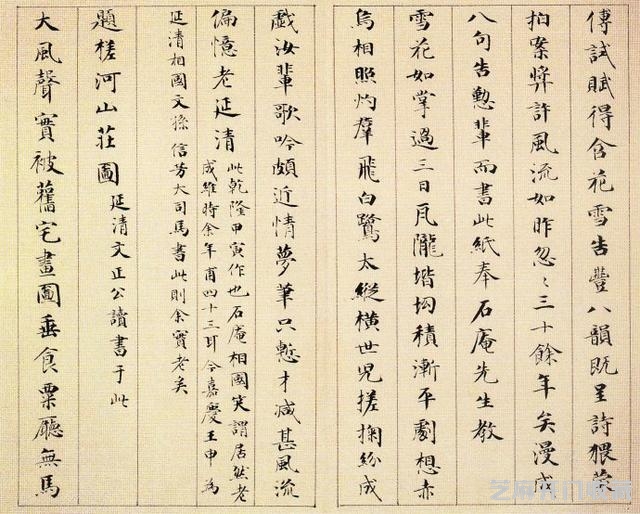 傅試賦得含花雪告豐八韻既呈詩猥蒙
拍案獎許風流如昨忽〻三十餘年矣漫成
八句告懃輩而書此紙奉石庵先生教
雪花如掌過三日瓦隴堦坳積漸平劇想赤
烏相照灼羣飛白鷺太縱橫世兒搓掬紛成
戲汝輩歌吟頗近情夢筆只慙才減甚風流
偏憶老延清
此乾隆甲寅作也石庵相國笑謂居然老
成雖時余年甫四十三耳今嘉慶壬申為
延清相國文孫信芳大司馬書此則余實老矣
題槎河山莊圖
延清文正公讀書于此
大風聲實被舊宅畫圖垂食粟廳無馬
芝麻开门